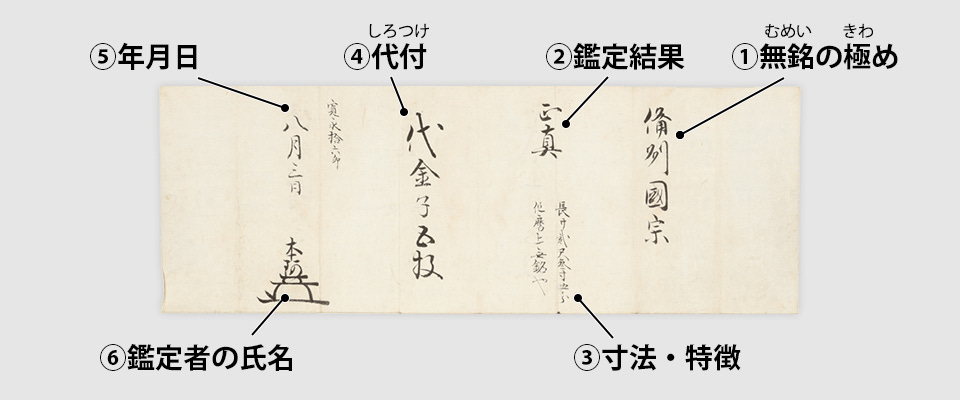 ⑤年月日
しろつけ
④代付
②鑑定結果
むめい きわ
①無銘の極め
備州國宗
正真
長サ貳尺三寸五分
代金子五枚
八月三日
本阿
⑥鑑定者の氏名
③寸法・特徴